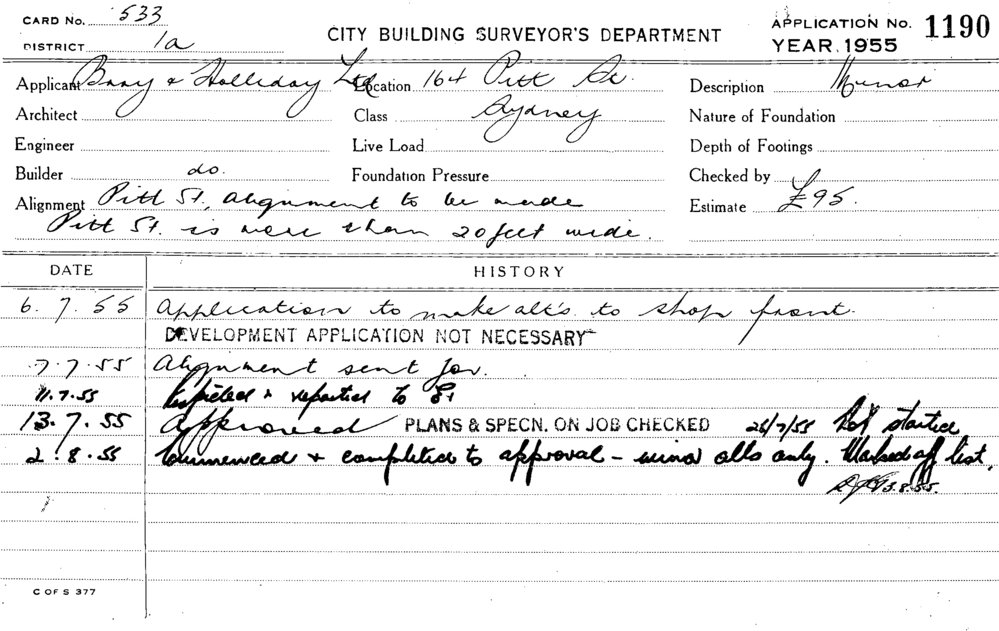 CARD No. 533
DISTRICT 1a
CITY BUILDING SURVEYOR'S DEPARTMENT
APPLICATION No. 1190
YEAR. 1955
Applicant Bray & Holliday Ltd Location 164 Pitt St. Description Minor
Architect Class Sydney Nature of Foundation
Engineer Live Load Depth of Footings
Builder do. Foundation Pressure Checked by
Alignment Pitt St. alignment to be made Estimate £95.
Pitt St. is more than 20 feet wide.
DATE HISTORY
6.7.55 Application to make alt's to shop front.
DEVELOPMENT APPLICATION NOT NECESSARY
7.7.55 Alignment sent for.
11.7.55 Inspected & reported to
13.7.55 Approved PLANS & SPECN. ON JOB CHECKED 26/7/55 Not started
2.8.55 Commenced & completed to approval - minor alts only. Marked off list.
3.8.55.
C OF S 377